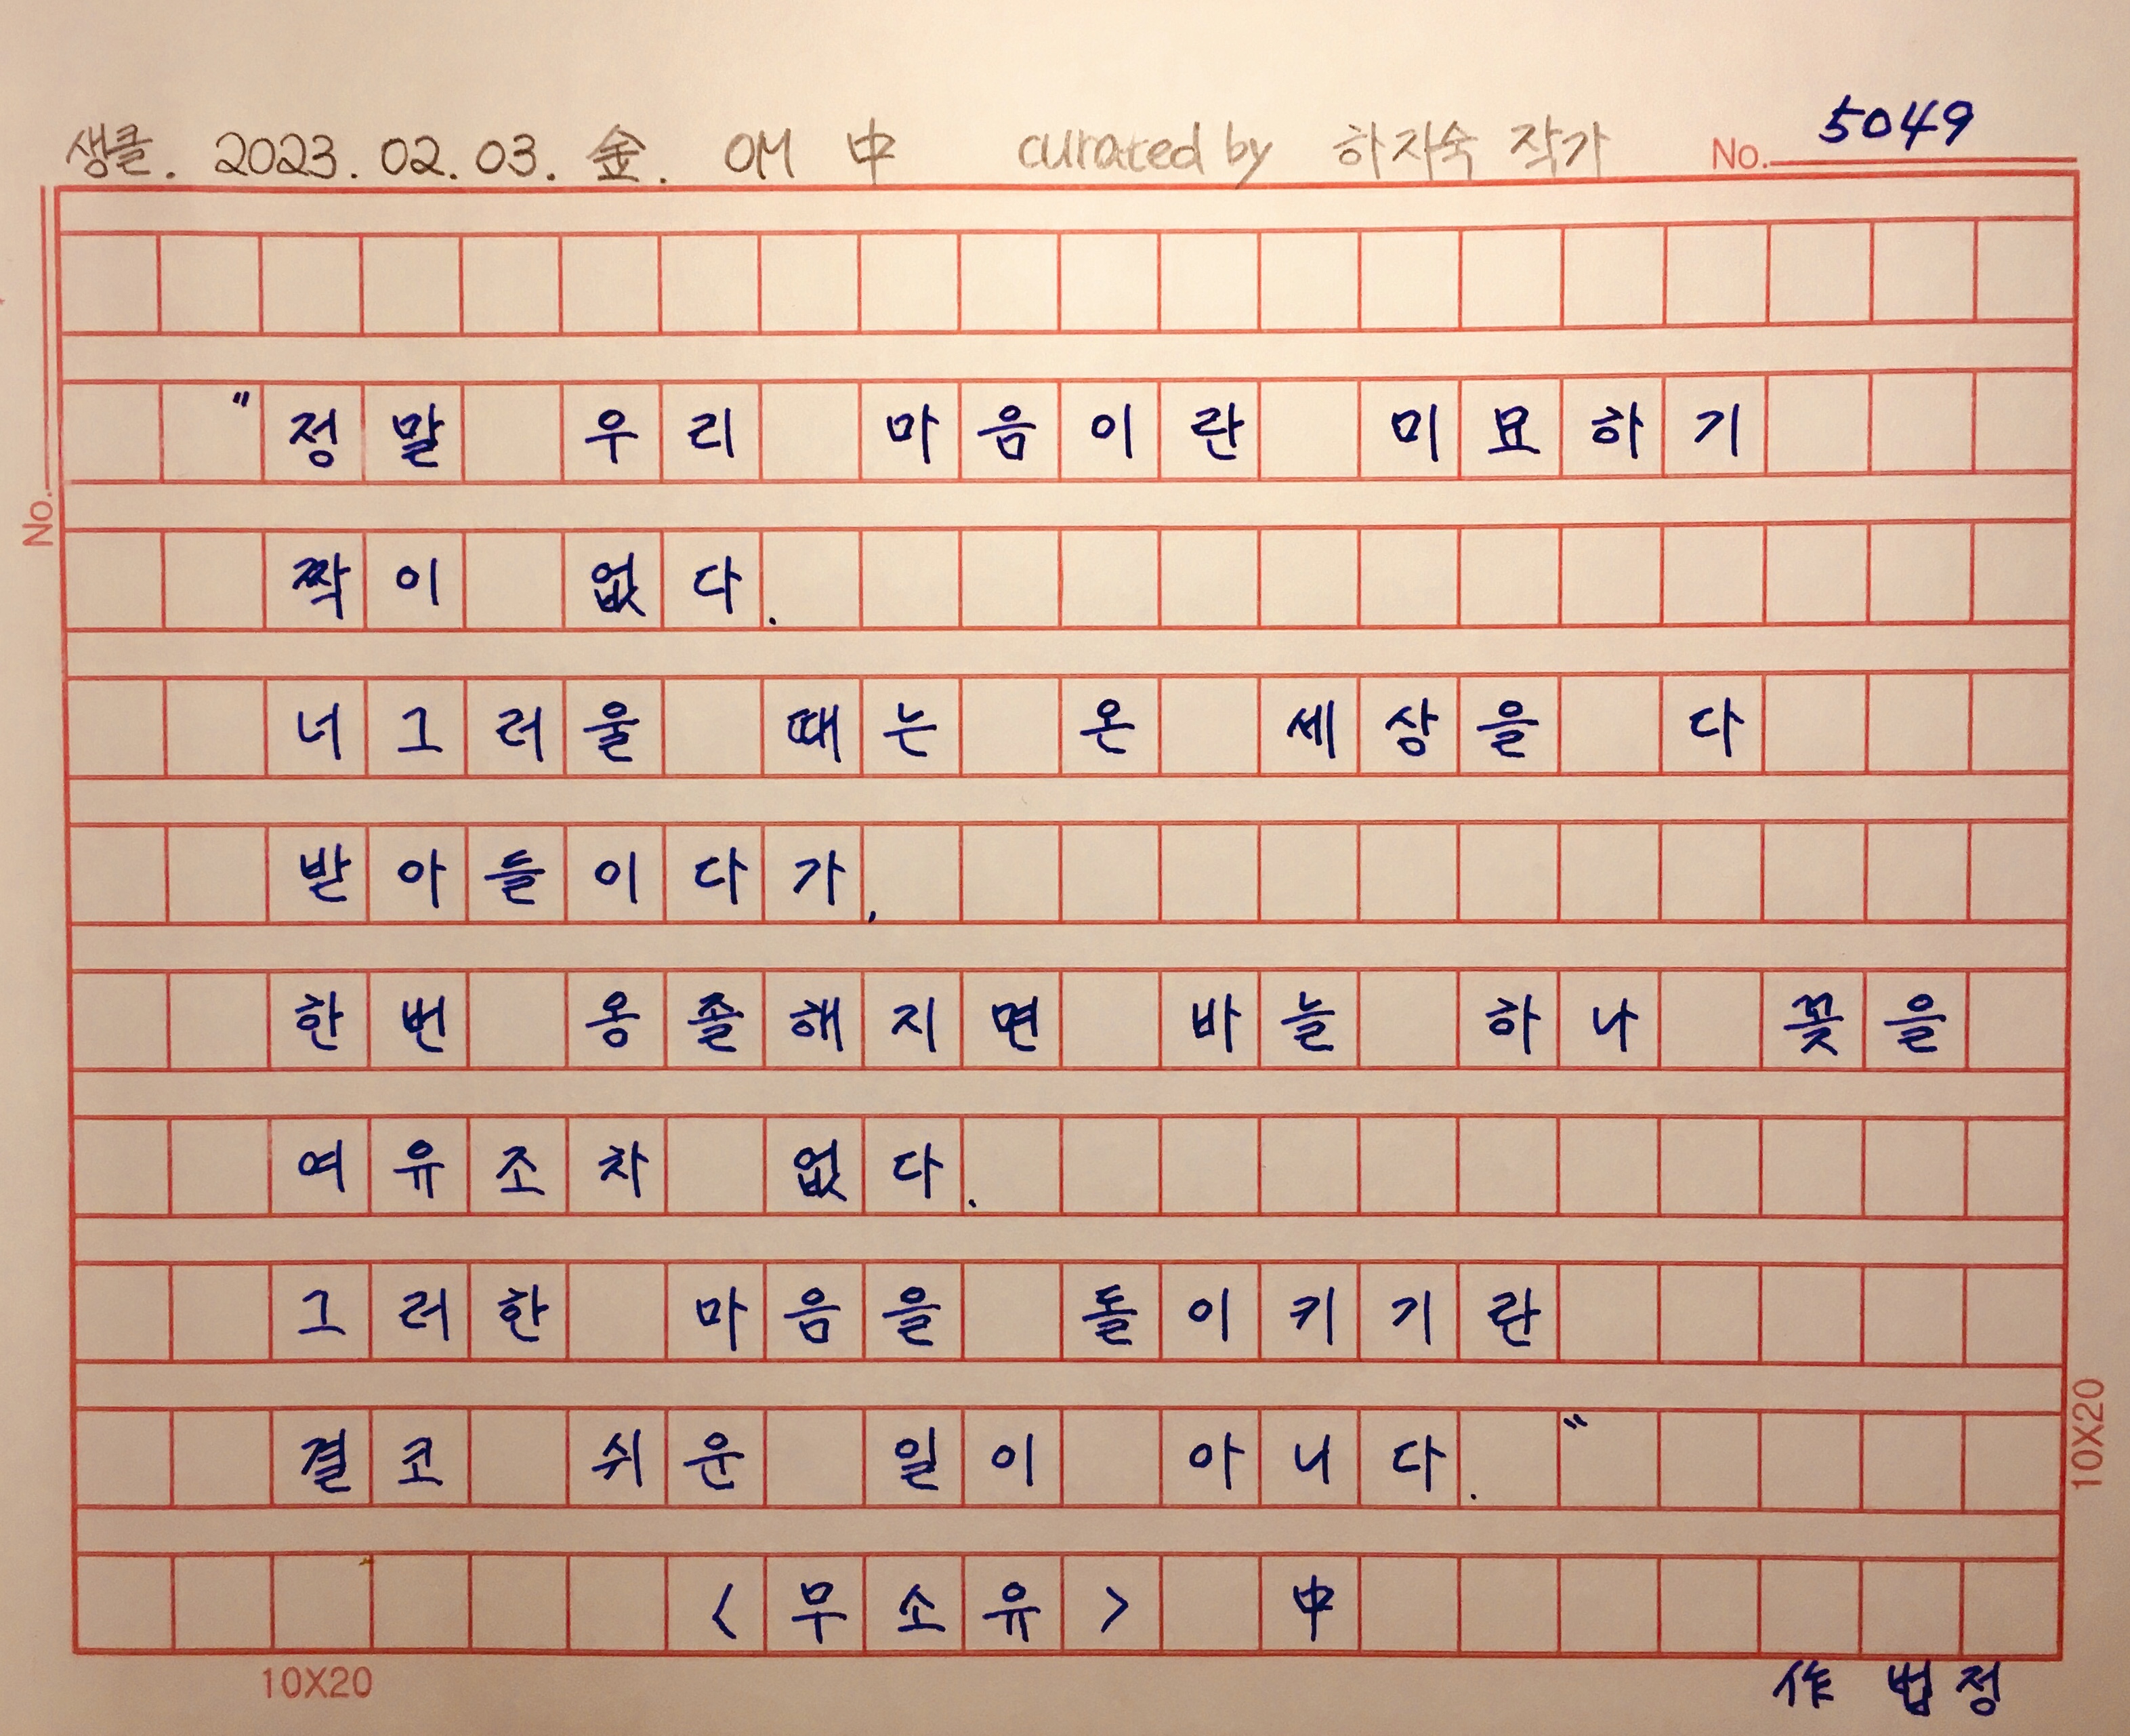 생클. 2023. 02. 03. 金. OM 中 curated by 하자숙 작가 No. 5049
"정말 우리 마음이란 미묘하기
짝이 없다.
No.
너그러울 때는 온 세상을 다
받아들이다가,
한번 옹졸해지면 바늘 하나 꽂을
여유조차 없다.
그러한 마음을 돌이키기란
결코 쉬운 일이 아니다."
10X20
<무소유> 中
10X20
作 법정